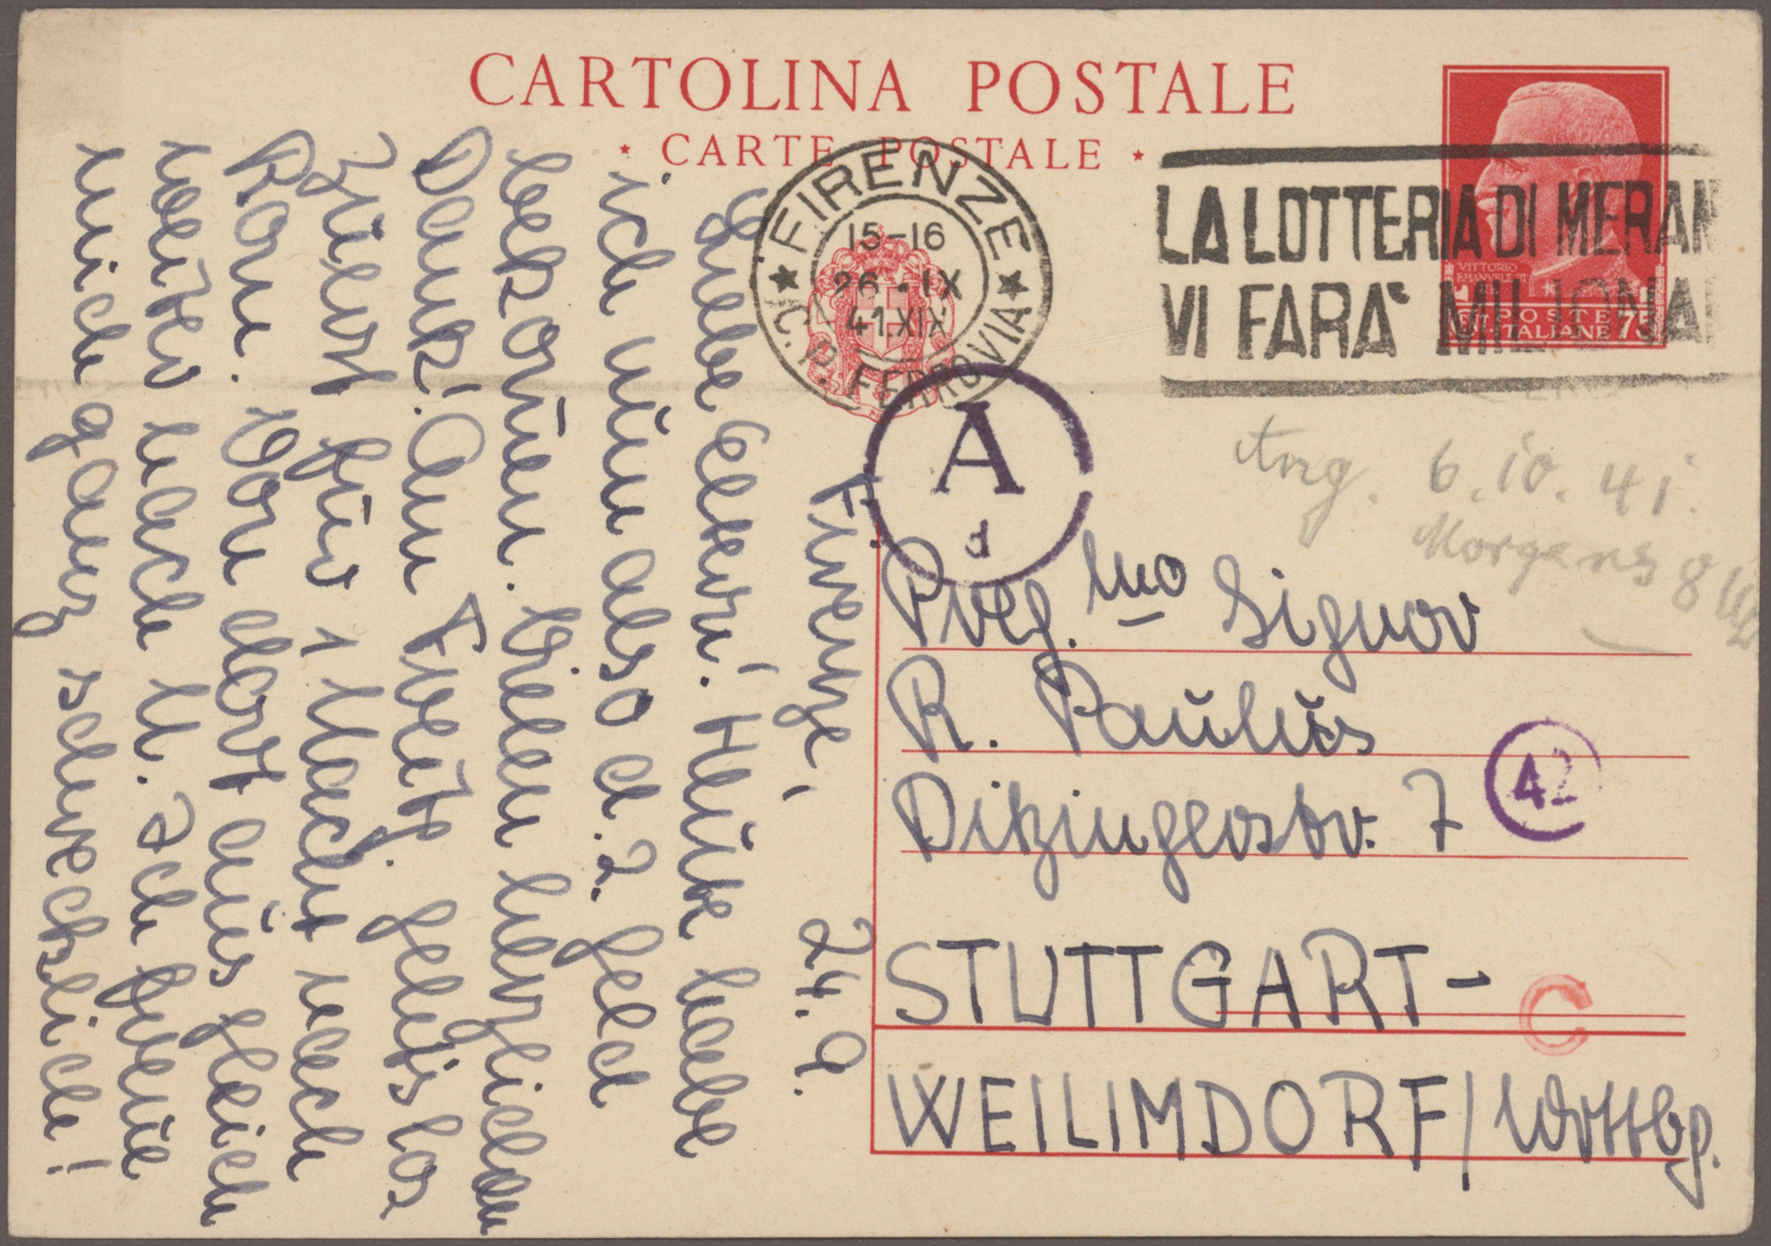 CARTOLINA POSTALE
* CARTE POSTALE *
* FIRENZE *
15-16
26 . IX
41 XIX
FERROVIA
LA LOTTERIA DI MERAN
VI FARA' MILIONA
VITTORIO
EMANUELE III
POSTE
ITALIANE
75
A
d
Ang. 6.10.41.
Morgens 8 Uhr
Preg.mo Signor
R. Paulus
Ditzingerstr. 7
42
STUTTGART-
C
WEILIMDORF/Württbg.
Firenze, 24.9.
Liebe Eltern! Heute habe
ich nun also d. 2. Geld
bekommen. Vielen herzlichen
Dank! Am Freitg. geht's los
Zuerst für 1 Nacht nach
Rom. Von dort aus gleich
weiter nach N. Ich freue
mich ganz schrecklich!